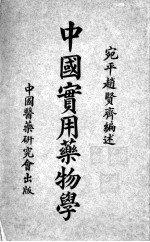 宛平趙賢齋編述
中國實用藥物學
中國醫藥研究會出版